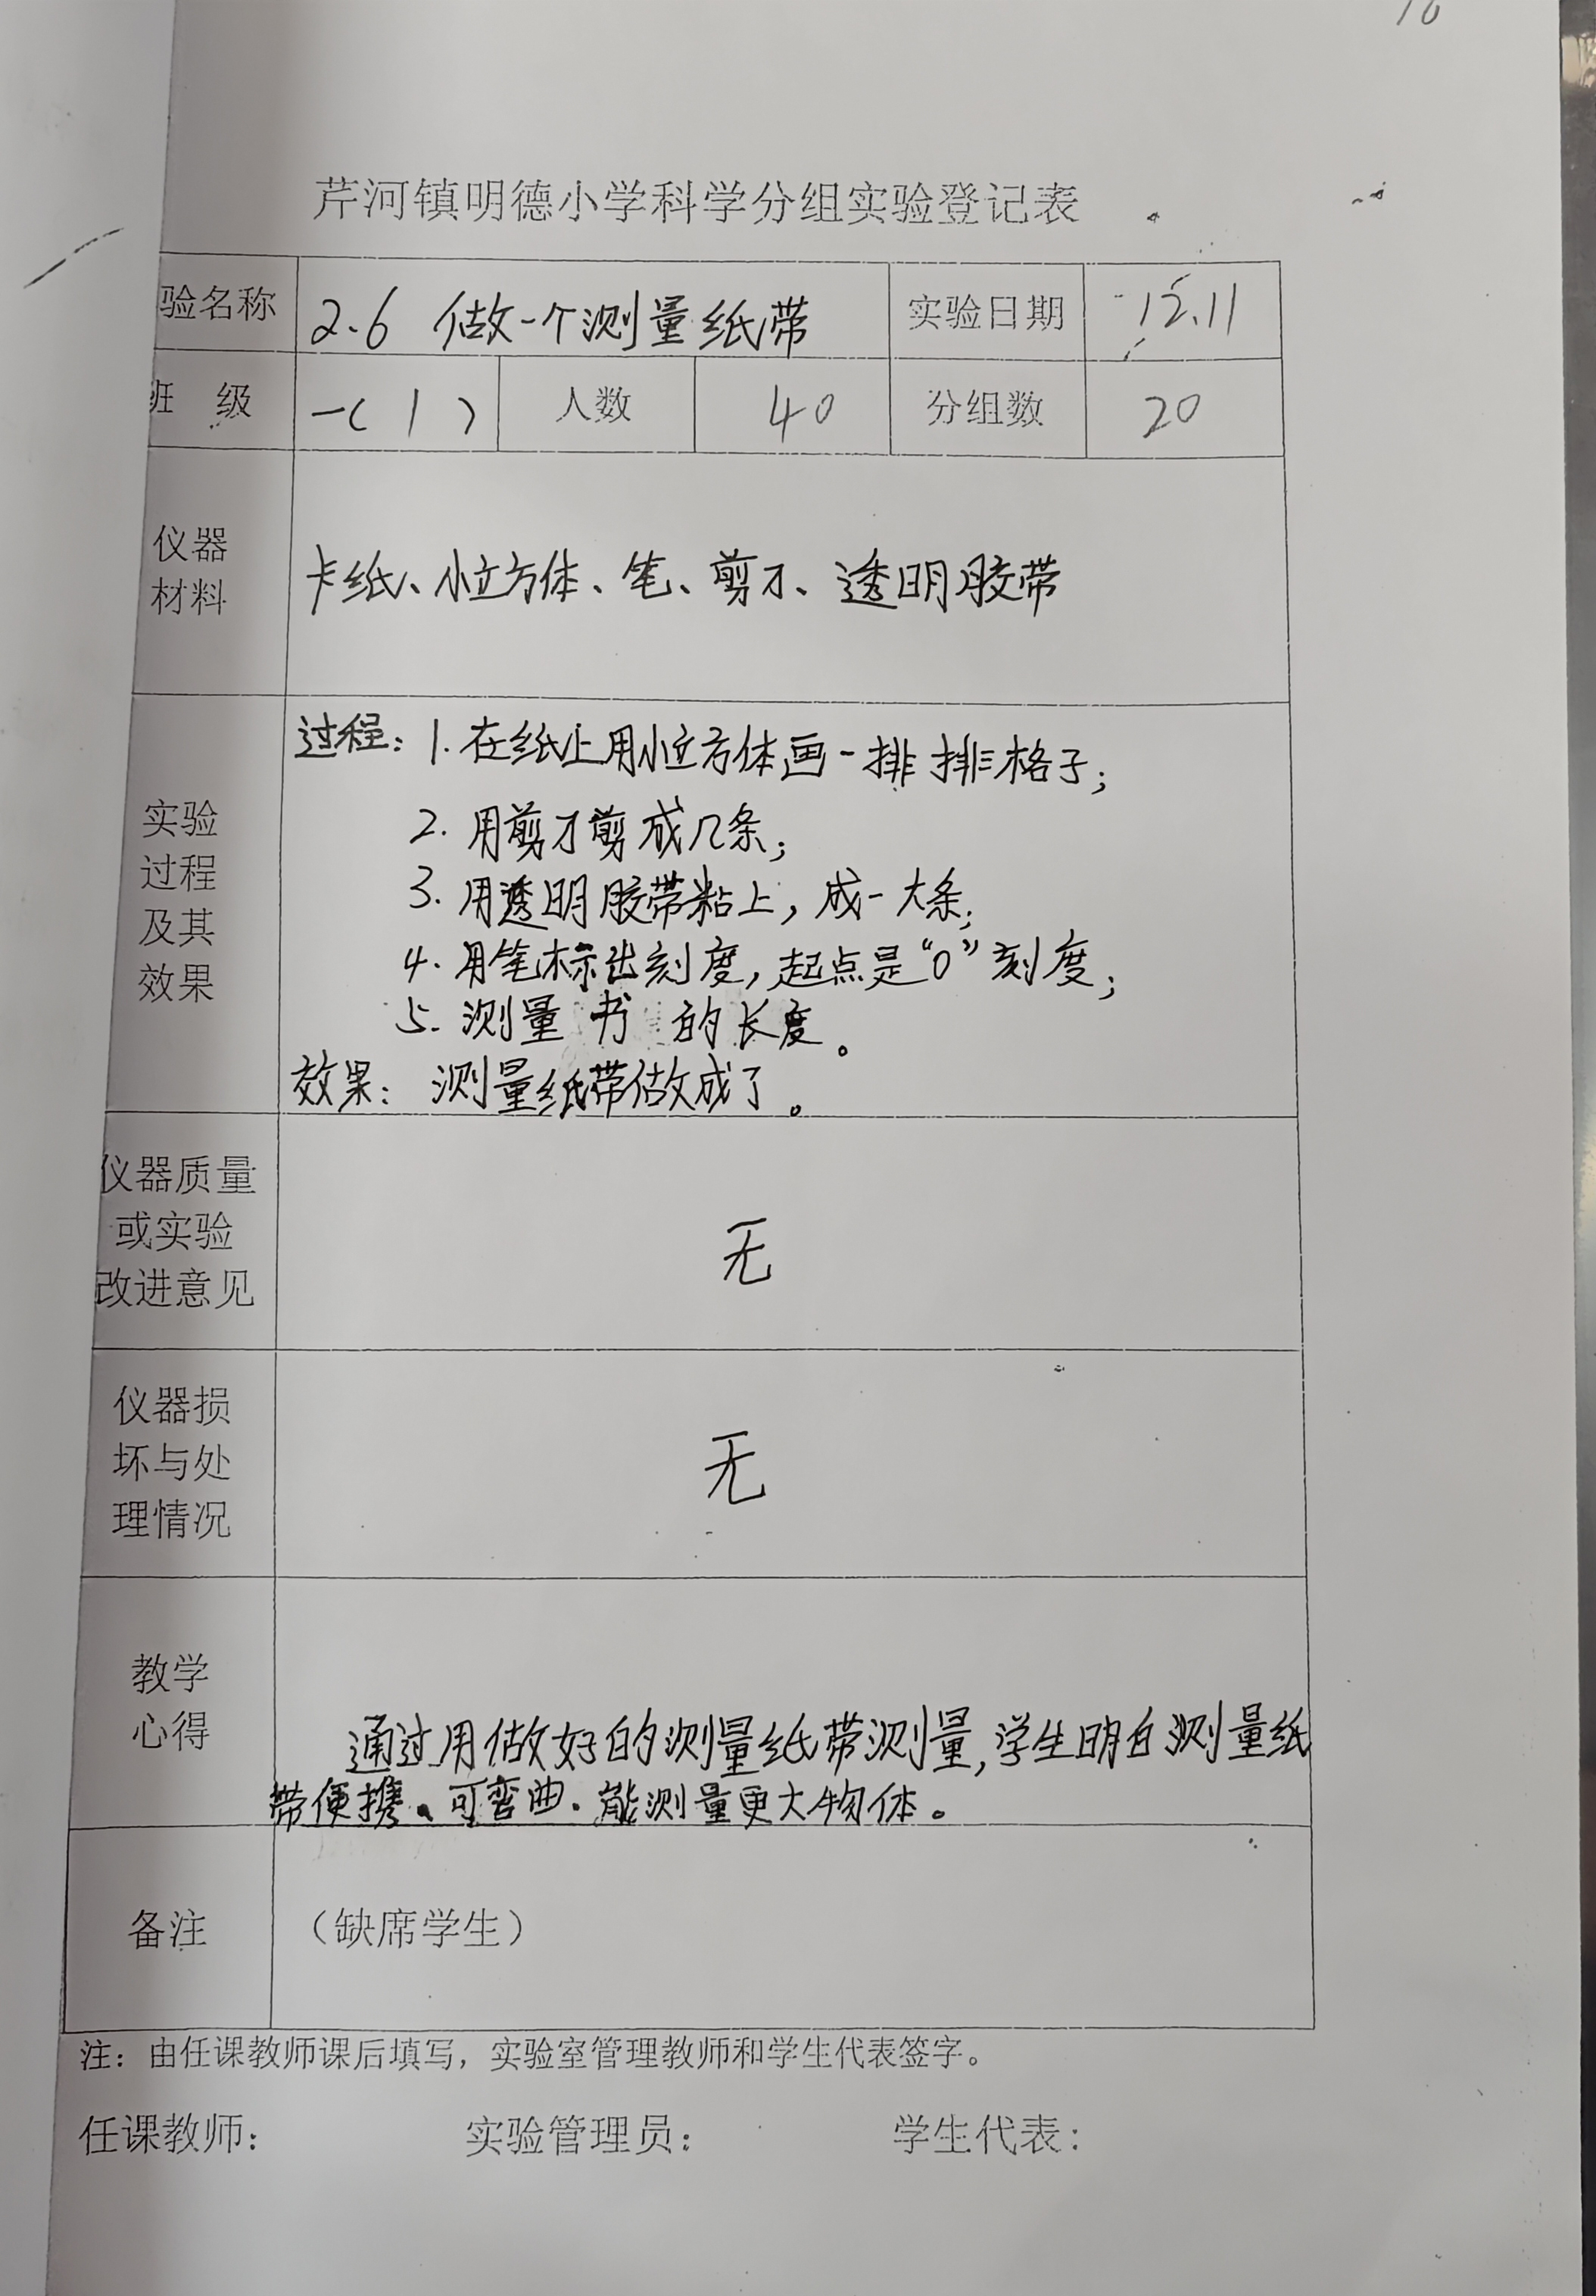 10
芹河镇明德小学科学分组实验登记表
验名称 2.6 做一个测量纸带 实验日期 12.11
班 级 一(1) 人数 40 分组数 20
仪器
材料
卡纸、小立方体、笔、剪刀、透明胶带
实验
过程
及其
效果
过程：1.在纸上用小立方体画一排排格子；
2.用剪刀剪成几条；
3.用透明胶带粘上，成一大条；
4.用笔标出刻度，起点是“0”刻度；
5.测量 书 的长度。
效果：测量纸带做成了。
仪器质量
或实验
改进意见
无
仪器损
坏与处
理情况
无
教学
心得
通过用做好的测量纸带测量，学生明白测量纸
带便携、可弯曲、能测量更大物体。
备注 （缺席学生）
注：由任课教师课后填写，实验室管理教师和学生代表签字。
任课教师： 实验管理员： 学生代表：